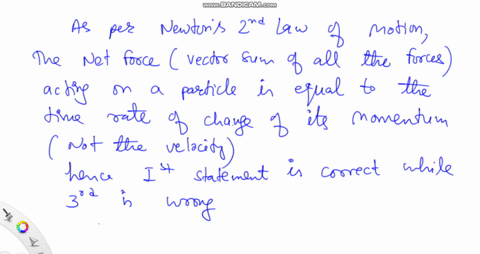 www.BANDICAM.com
As per Newton's 2nd Law of Motion,
The Net force (vector sum of all the forces)
acting on a particle is equal to the
time rate of change of its momentum
(Not the velocity)
hence Ist statement is correct while
3rd is wrong